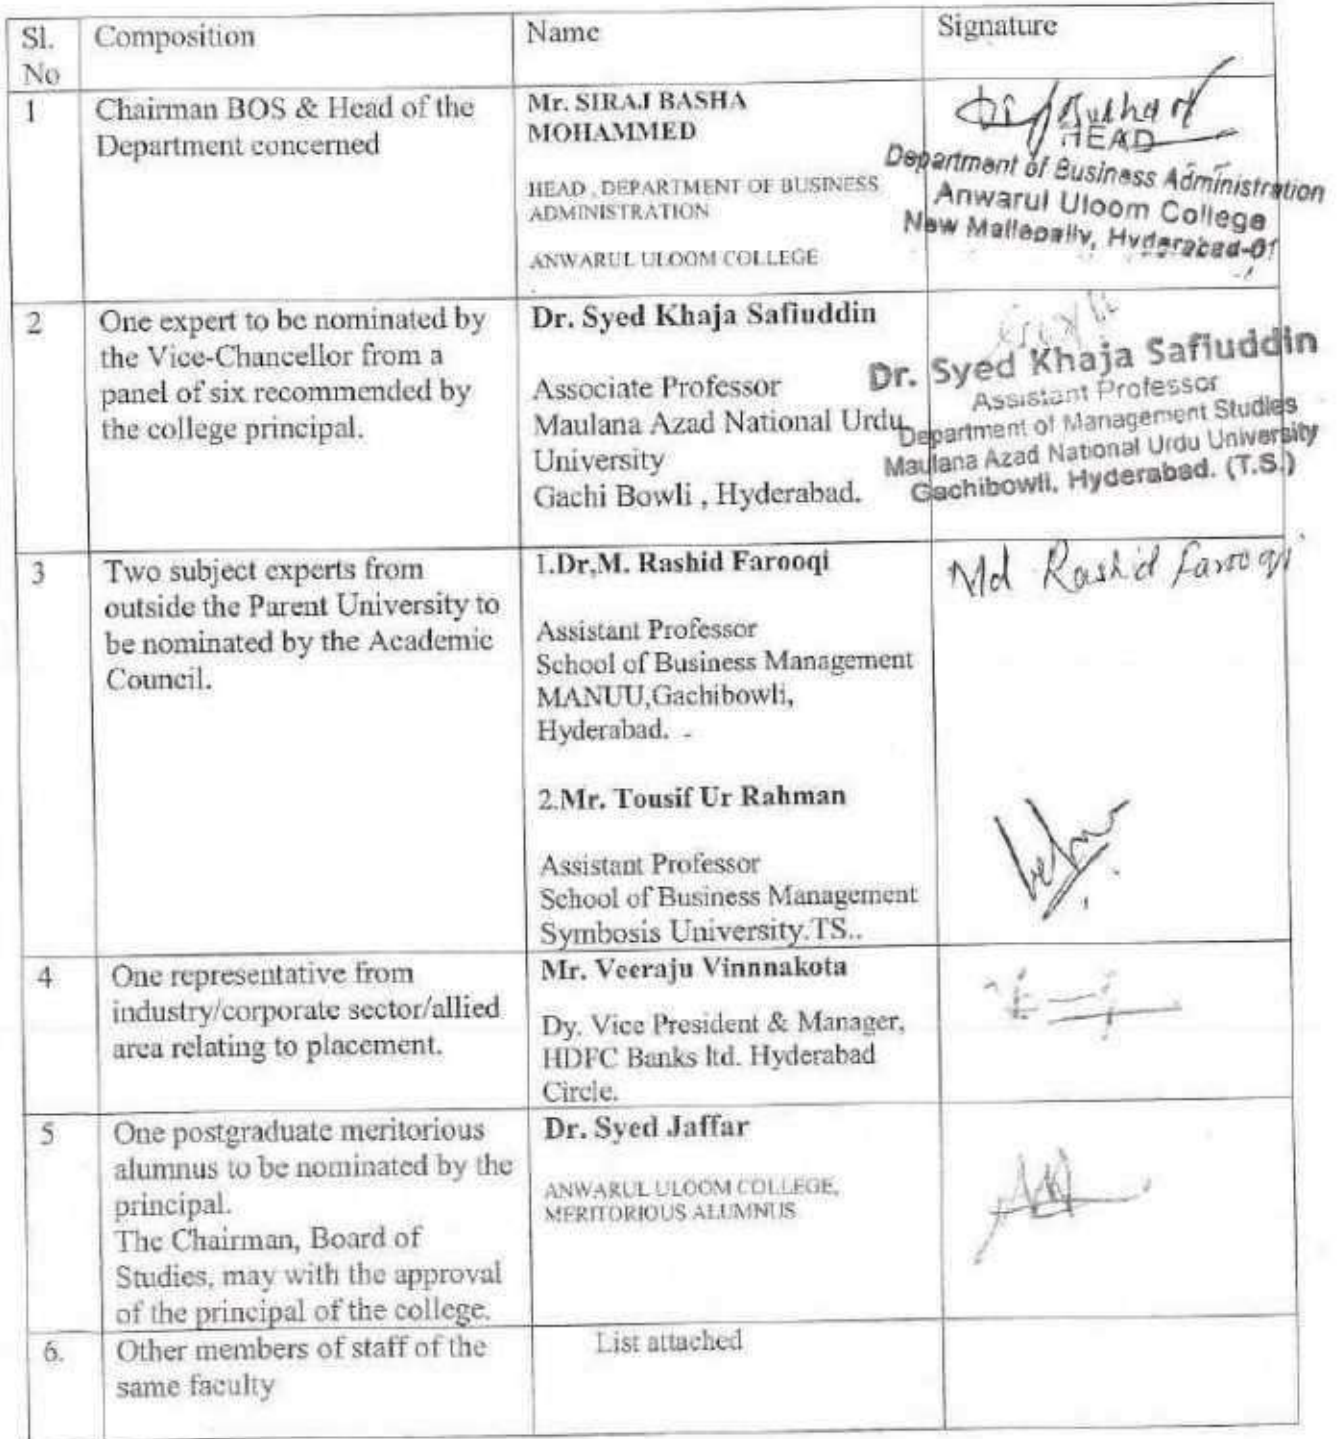 Sl. No
Composition
Name
Signature
1
Chairman BOS & Head of the
Department concerned
Mr. SIRAJ BASHA
MOHAMMED
HEAD , DEPARTMENT OF BUSINESS
ADMINISTRATION
ANWARUL ULOOM COLLEGE
HEAD
Department of Business Administration
Anwarul Uloom College
New Mallepally, Hyderabad-01
2
One expert to be nominated by
the Vice-Chancellor from a
panel of six recommended by
the college principal.
Dr. Syed Khaja Safiuddin
Associate Professor
Maulana Azad National Urdu
University
Gachi Bowli , Hyderabad.
Dr. Syed Khaja Safiuddin
Assistant Professor
Department of Management Studies
Maulana Azad National Urdu University
Gachibowli, Hyderabad. (T.S.)
3
Two subject experts from
outside the Parent University to
be nominated by the Academic
Council.
1.Dr,M. Rashid Farooqi
Assistant Professor
School of Business Management
MANUU,Gachibowli,
Hyderabad.
Md Rashid Farooqi
2.Mr. Tousif Ur Rahman
Assistant Professor
School of Business Management
Symbosis University.TS..
4
One representative from
industry/corporate sector/allied
area relating to placement.
Mr. Veeraju Vinnnakota
Dy. Vice President & Manager,
HDFC Banks ltd. Hyderabad
Circle.
5
One postgraduate meritorious
alumnus to be nominated by the
principal.
The Chairman, Board of
Studies, may with the approval
of the principal of the college.
Dr. Syed Jaffar
ANWARUL ULOOM COLLEGE,
MERITORIOUS ALUMNUS
6.
Other members of staff of the
same faculty
List attached